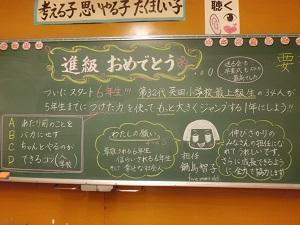 考える子 思いやる子 たくましい子
聴く
進級 おめでとう
ついにスタート 6年生!!! 第32代 英田小学校 最上級生の 34人が
5年生までにつけた力を使って もっと大きくジャンプする1年にしよう!!
A あたり前のことを
B バカにせず
C ちゃんとやるのが
D できるコツ
わたしの願い
尊敬される6年生
信らいされる6年生
担任
鍋島智子
伸びざかりの
みなさんの担任になれ
てうれしいです。
さらに成長できるよう
に全力で協力します!
要